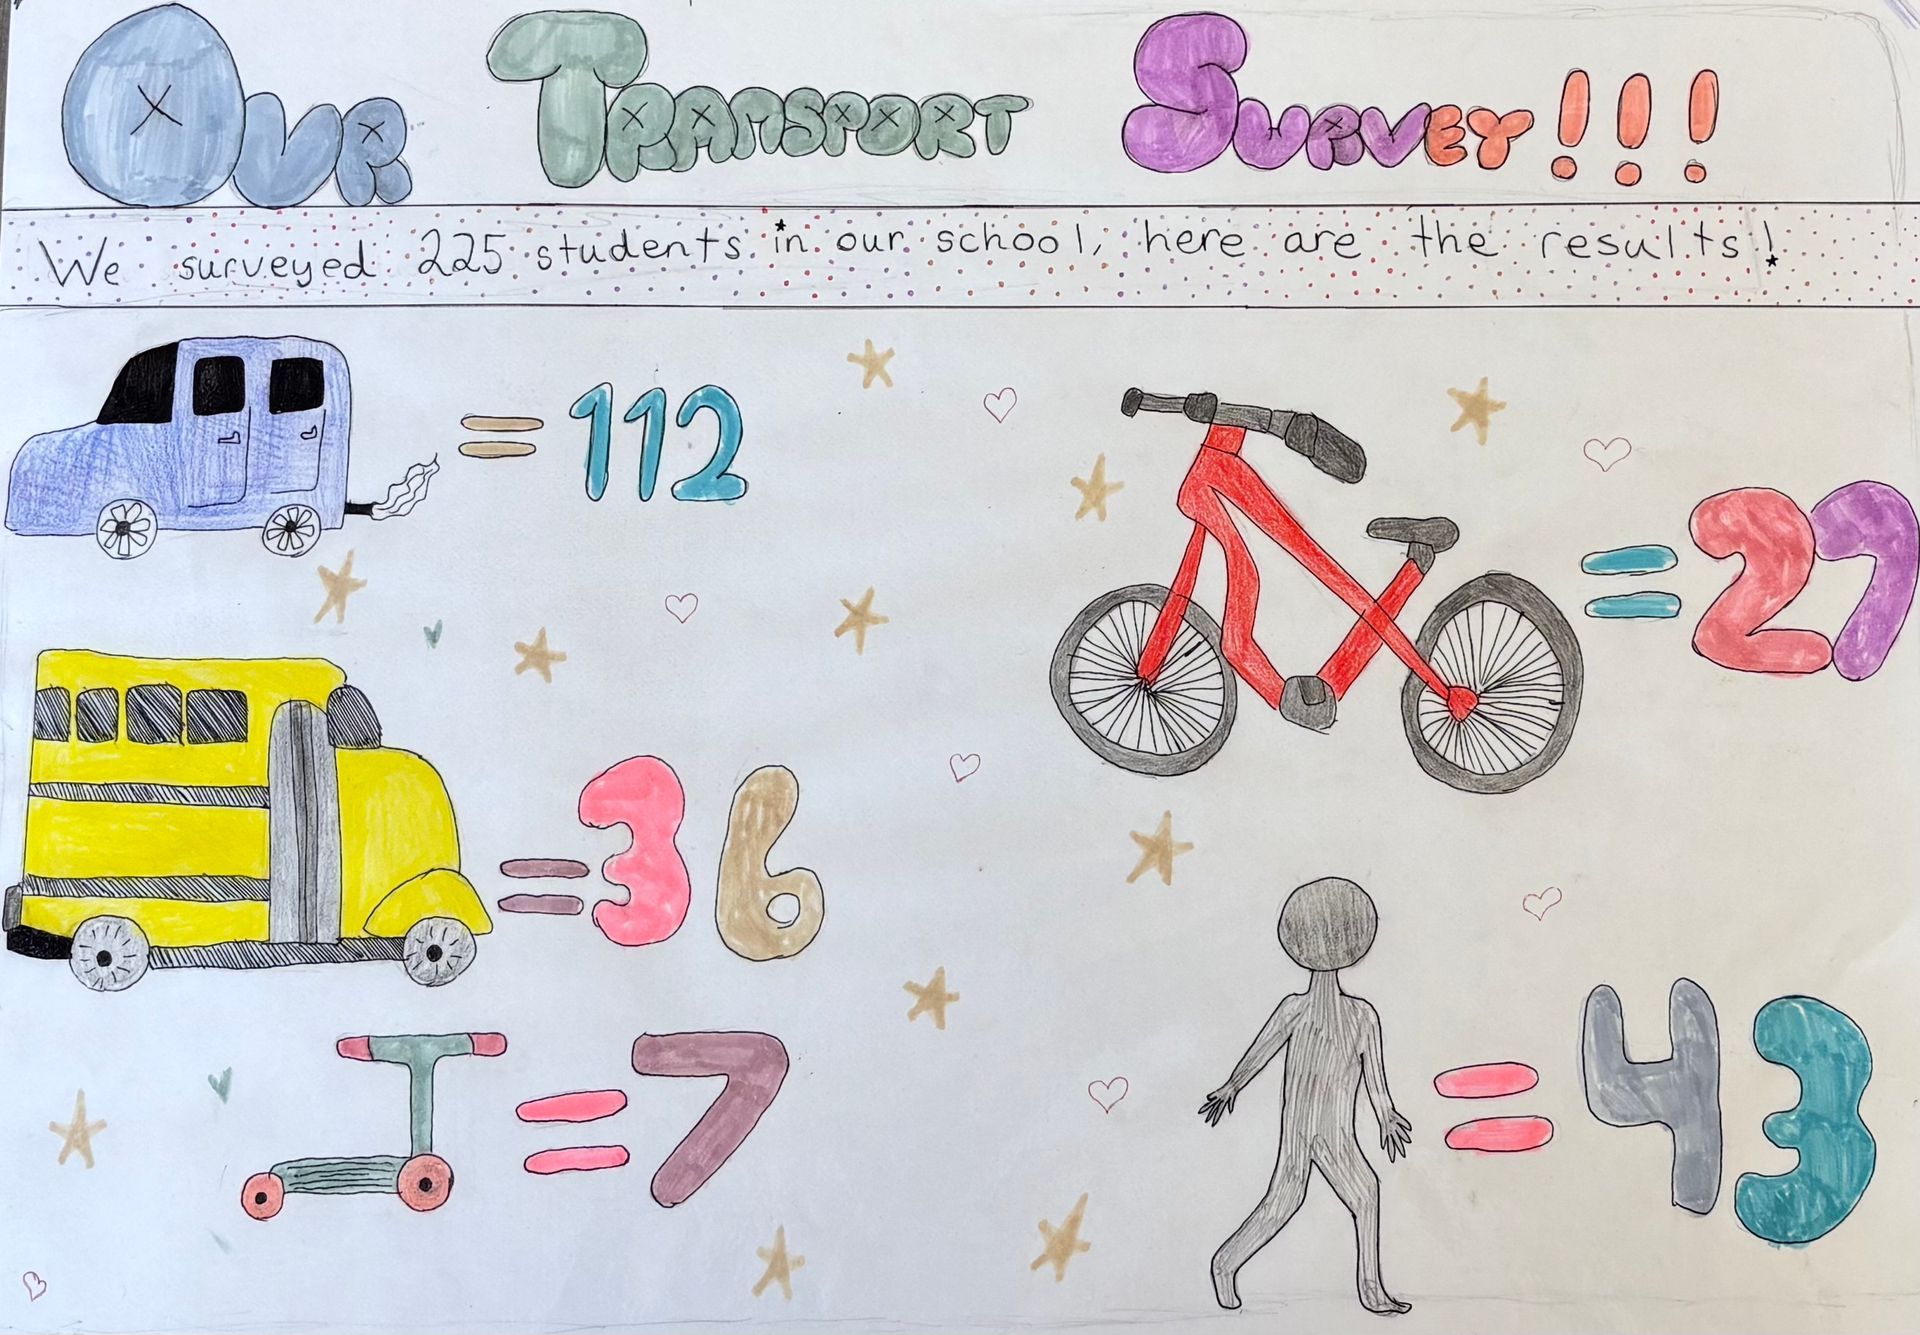 OUR TRANSPORT SURVEY!!!
We surveyed 225 students in our school, here are the results!
= 112
= 27
= 36
= 7
= 43